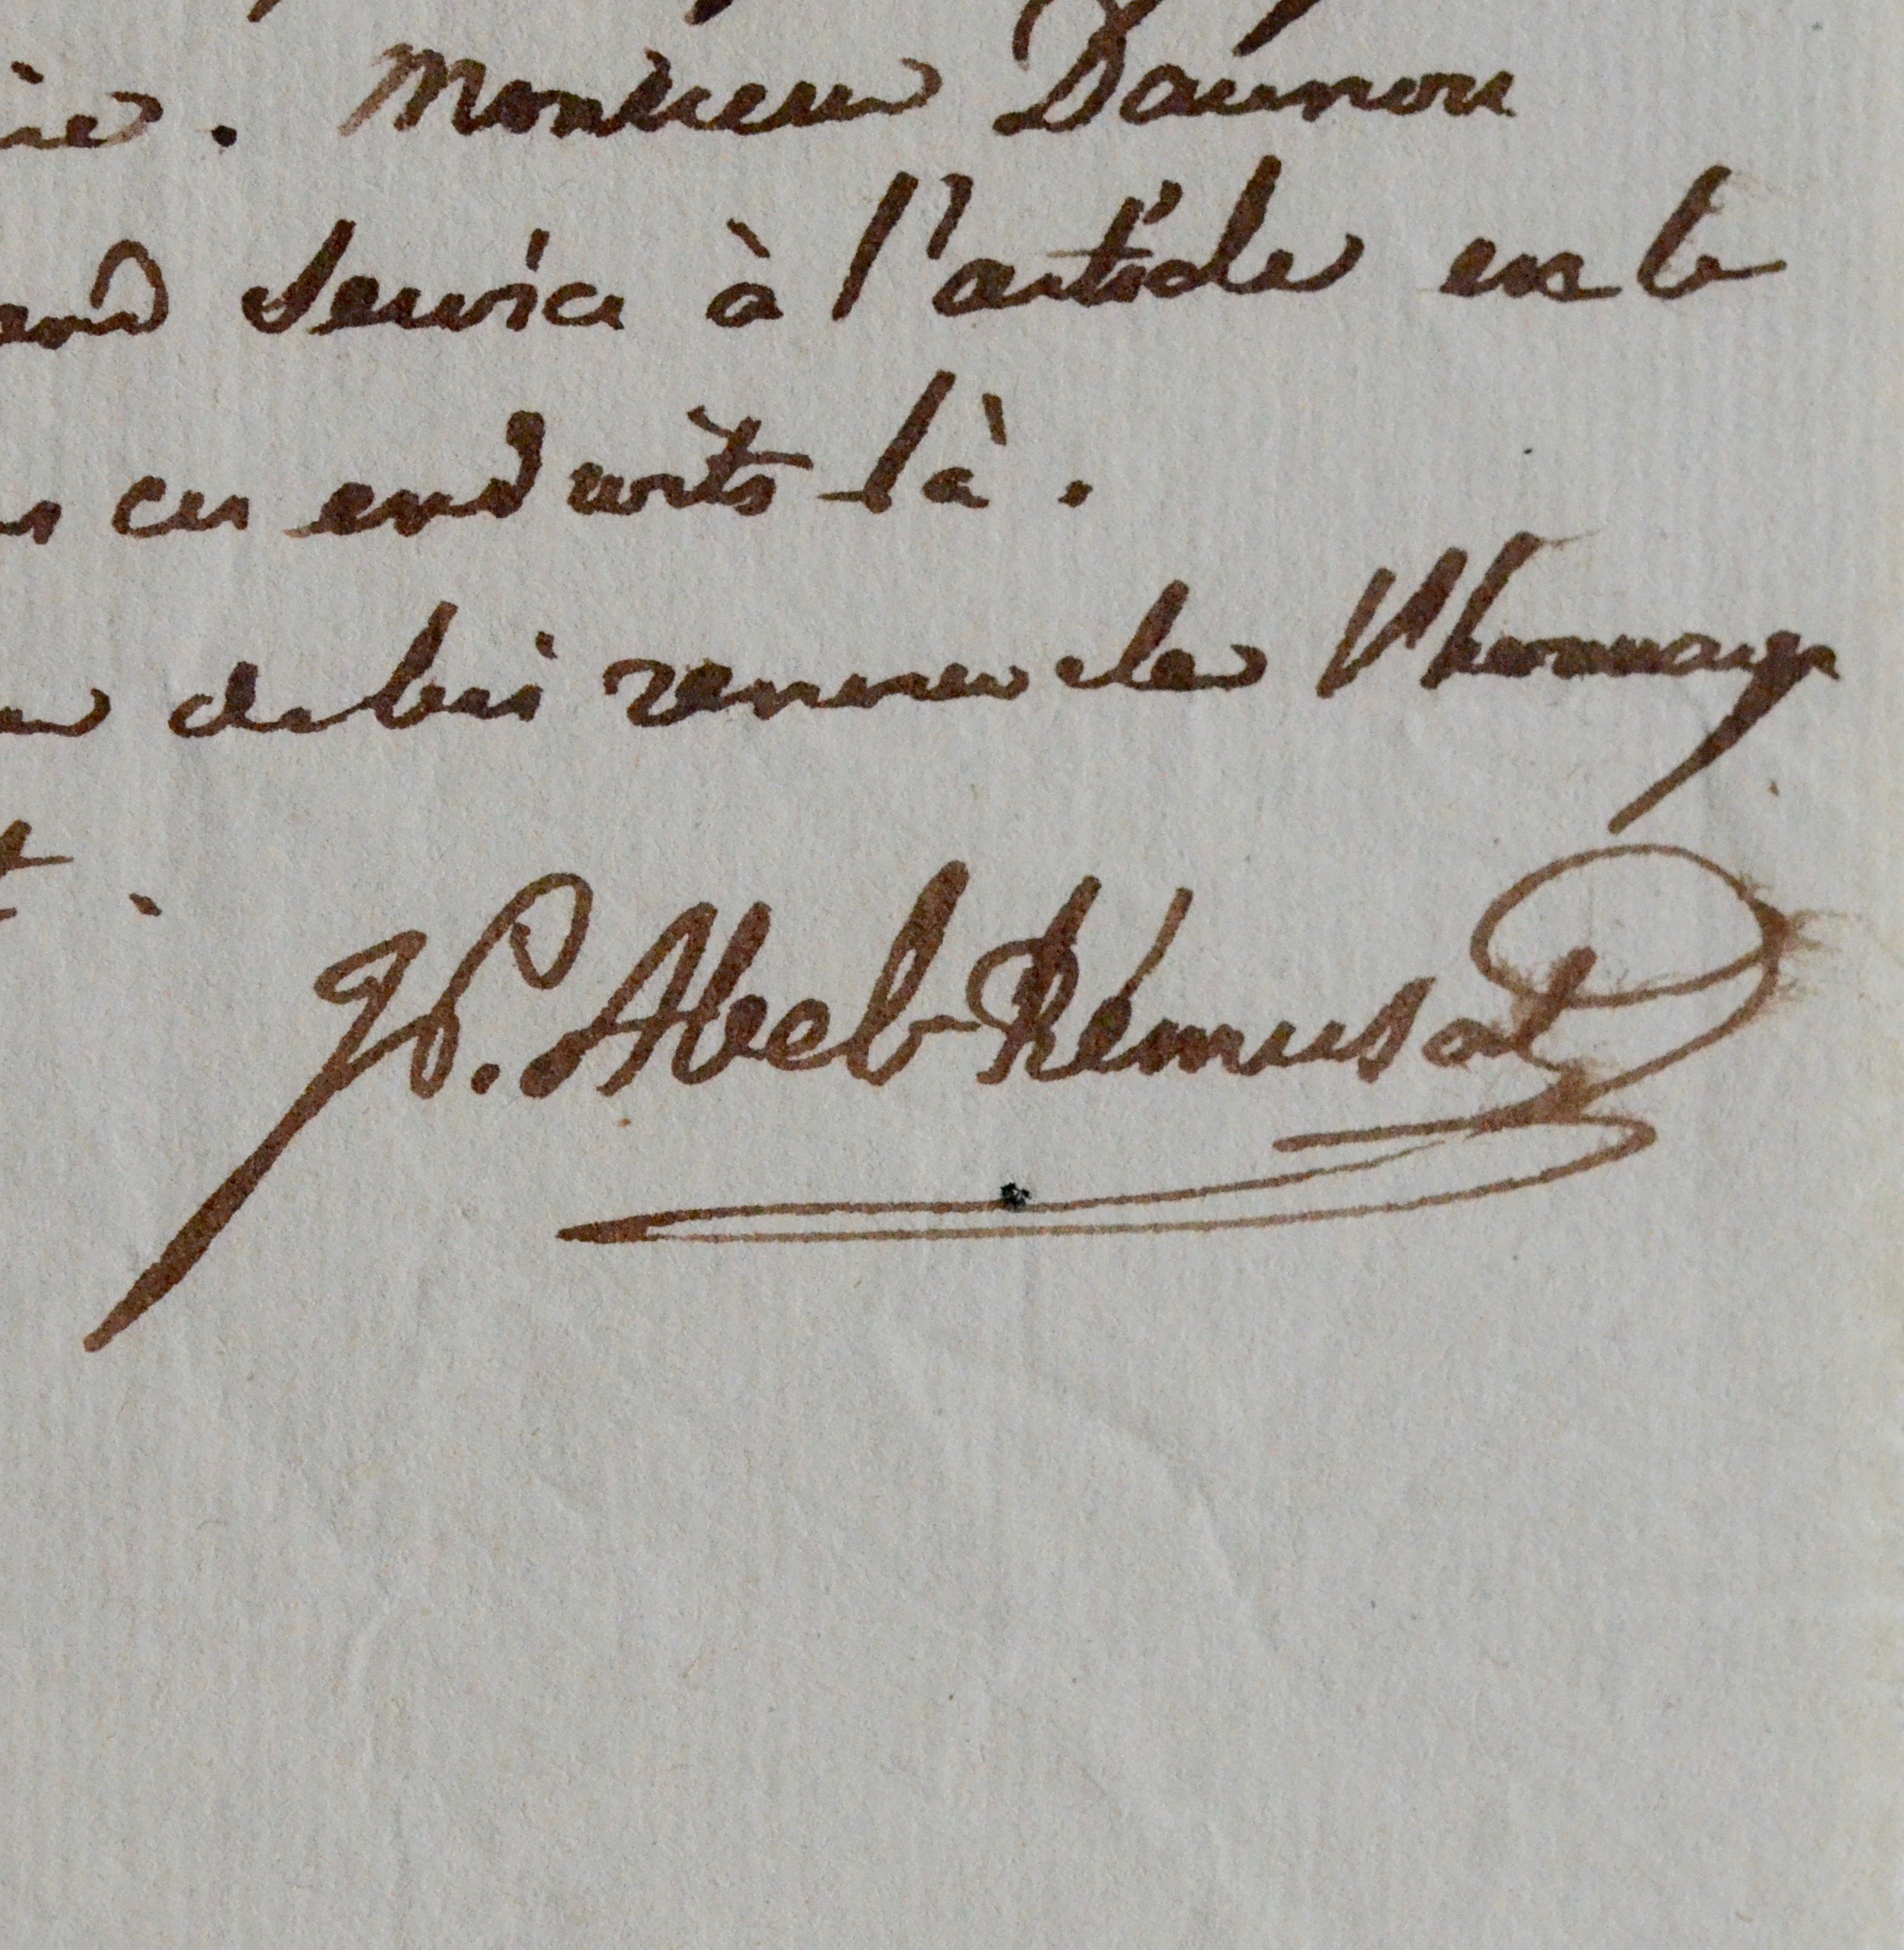 . Monsieur Daunou
service à l'article et le
ces endroits là.
de lui renouveler l'hommage
JP. Abel-Rémusat